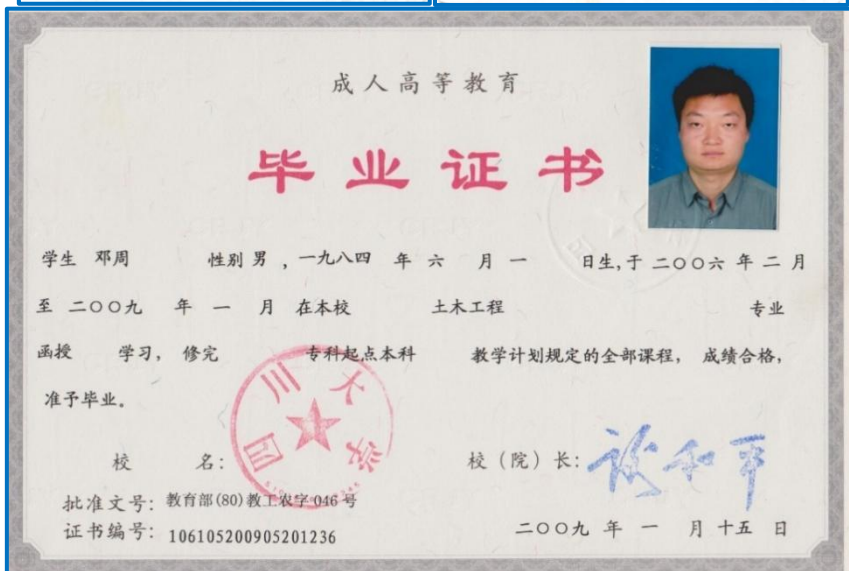 成人高等教育
毕业证书
学生 邓周 性别 男 , 一九八四 年 六 月 一 日生,于 二〇〇六 年 二 月
至 二〇〇九 年 一 月 在本校 土木工程 专业
函授 学习, 修完 专科起点本科 教学计划规定的全部课程, 成绩合格,
准予毕业。
四川大学
校 名:
校(院)长: 谢和平
批准文号: 教育部(80)教工农字 046 号
证书编号: 106105200905201236
二〇〇九 年 一 月 十五 日